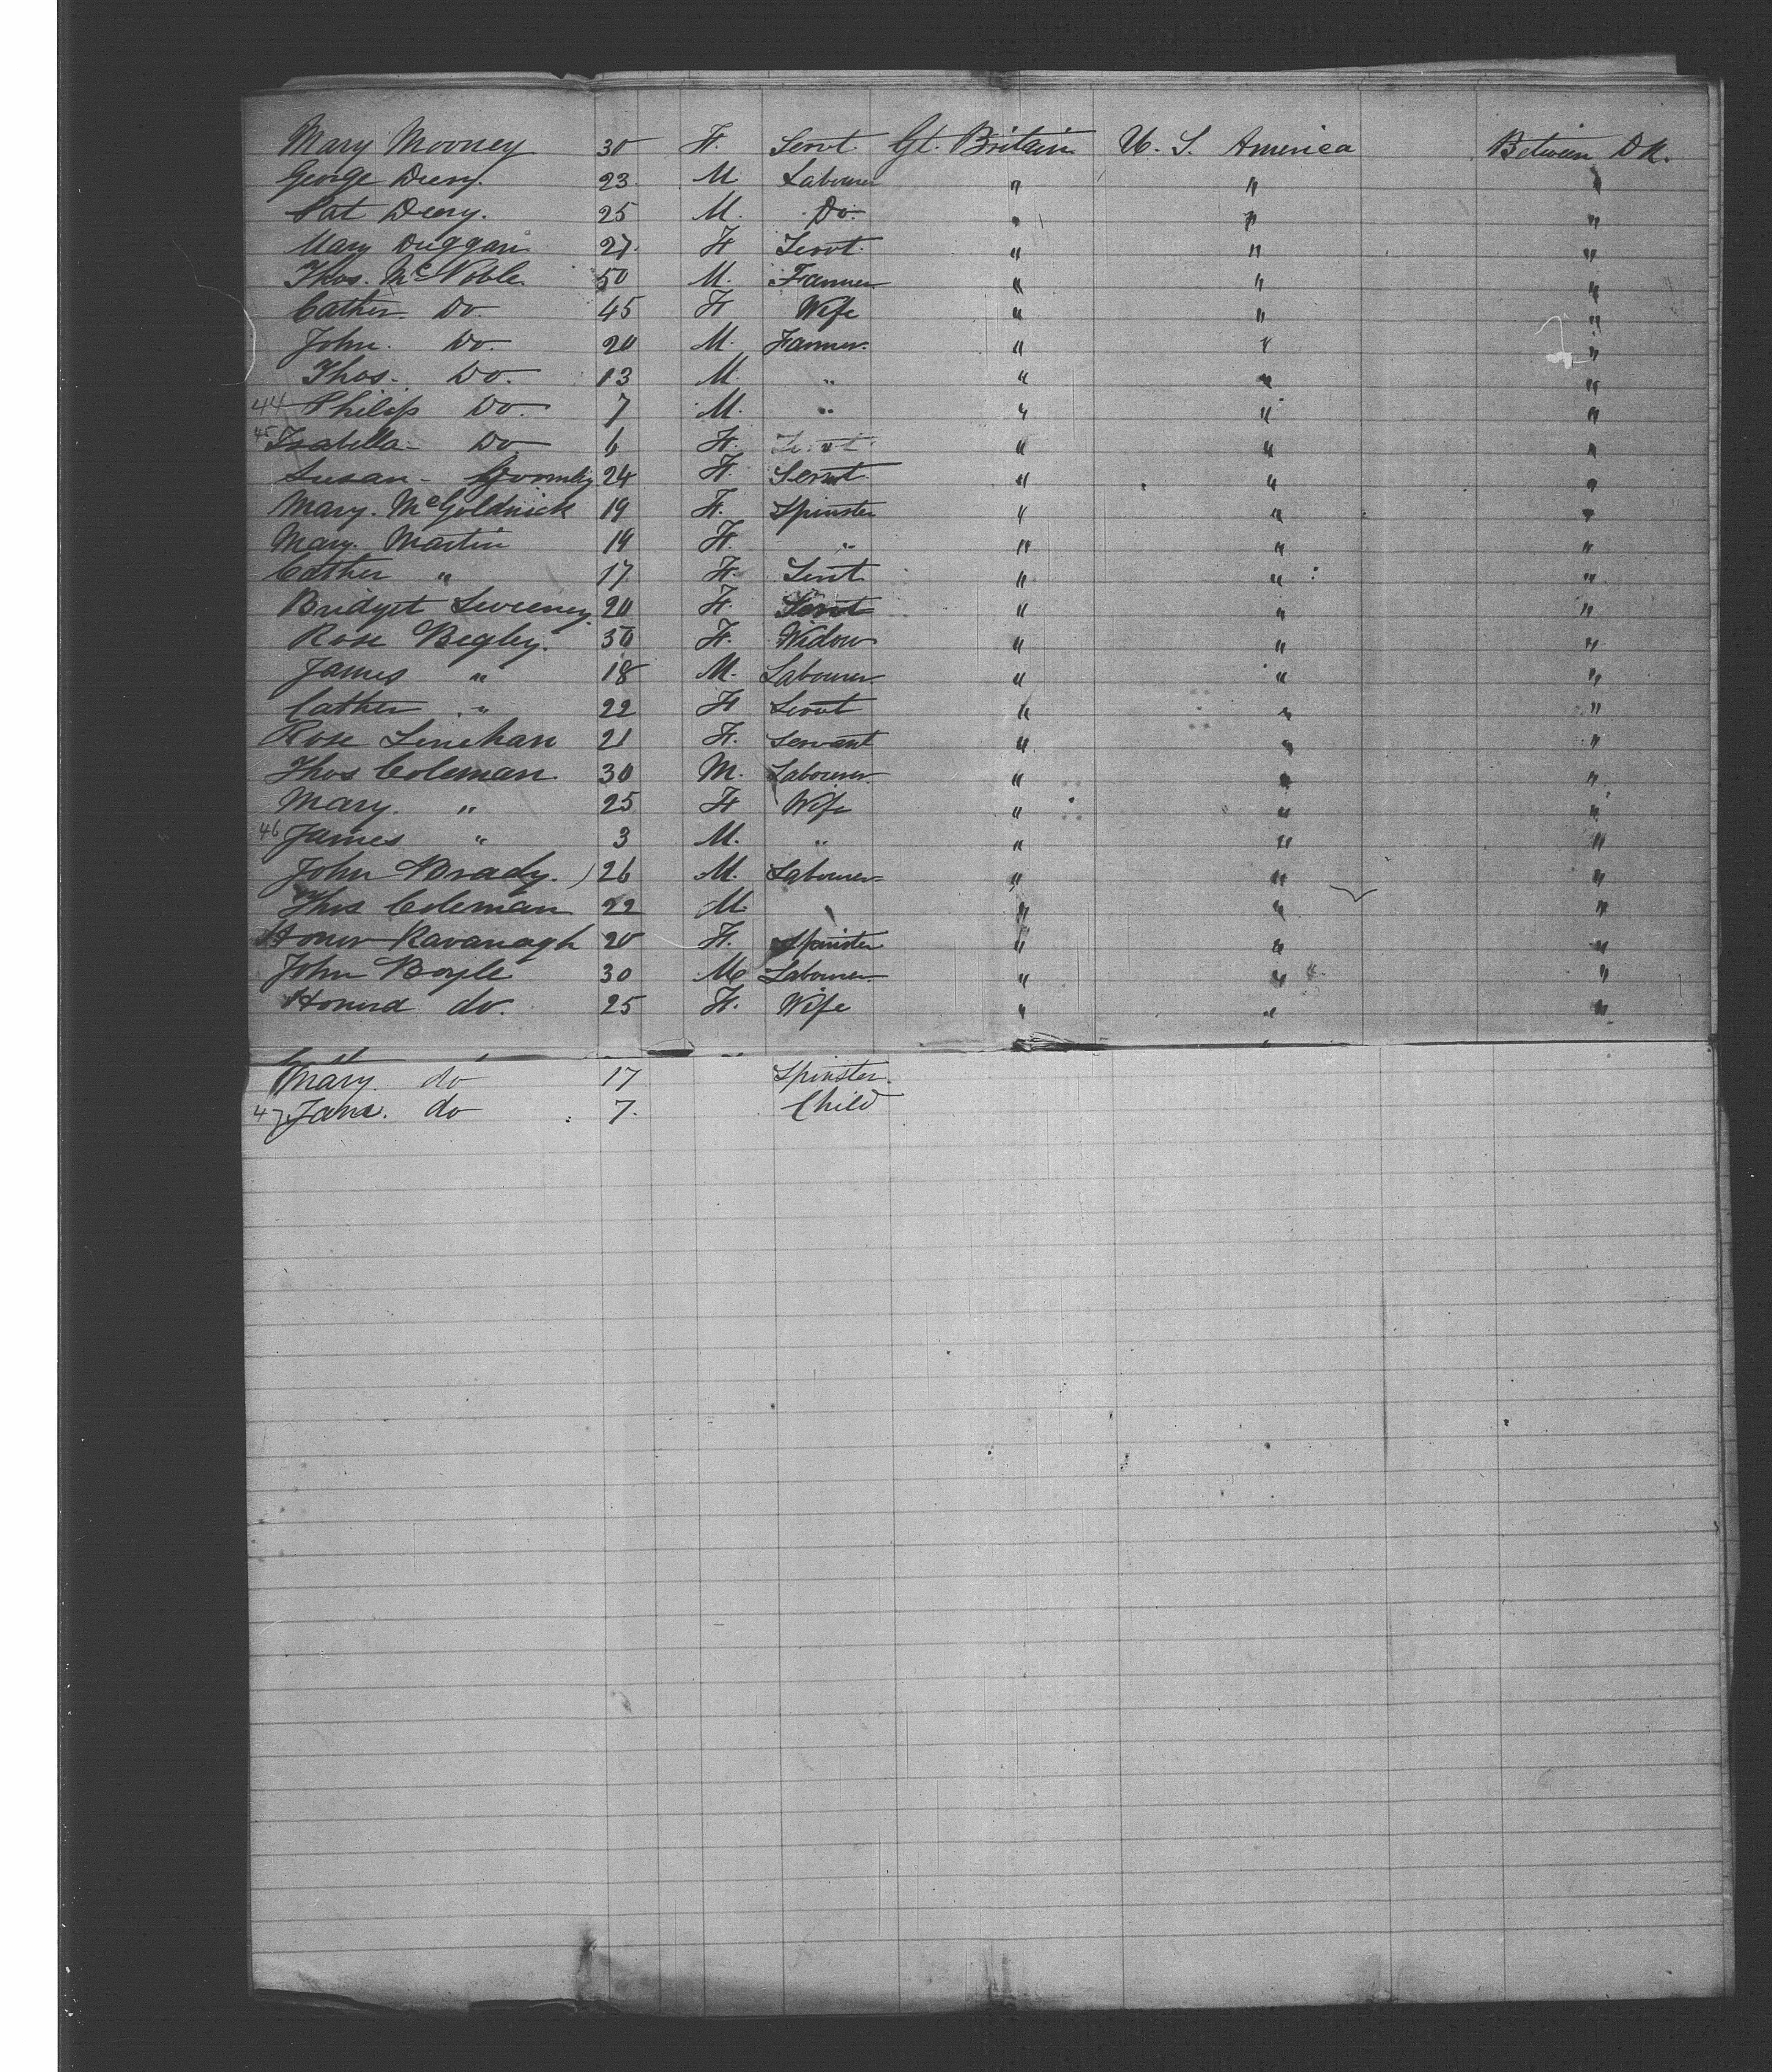 Mary Mooney 30 F. Servt. Gt. Britain U. S. America Between Dk.
George Deery. 23. M Labourer " " "
Pat Deery. 25 M. Do. " " "
Mary Duggan 27. F Servt. " " "
Thos. McNoble. 50 M. Farmer " " "
Cather. Do. 45 F Wife " " "
John. Do. 20 M. Farmer. " " "
Thos. Do. 13 M. " " " "
44 Philip Do. 7 M. " " " "
45 Isabella Do 6 F. Servt. " " "
Susan Gormly 24 F. Servt. " " "
Mary. McGoldrick 19 F. Spinster " " "
Mary. Martin 19 F. " " " "
Cather " 17 F. Servt. " " "
Bridget Sweeney. 20 F. Servt " " "
Rose Begley. 50 F. Widow " " "
James " 18 M. Labourer. " " "
Cather " 22 F Servt " " "
Rose Linehan 21 F. Servant " " "
Thos Coleman. 30 M. Labourer " " "
Mary. " 25 F Wife " " "
46 James " 3 M. " " " "
John Brady. 26 M. Labourer " " "
Thos Coleman 22 M " " " "
Honor Kavanagh 20 F. Spinster " " "
John Boyle 30 M Labourer " " "
Honora do. 25 F. Wife " " "
Mary. do 17 Spinster.
47 Jane. do 7. Child